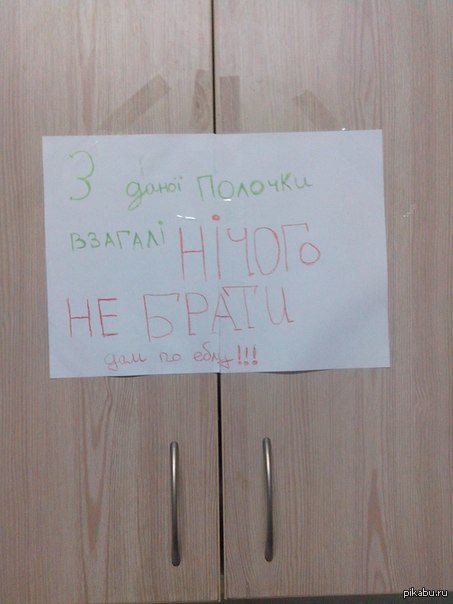 З даної ПОЛОЧКИ
ВЗАГАЛІ НІЧОГО
НЕ БРАТИ
дам по еблу!!!
pikabu.ru